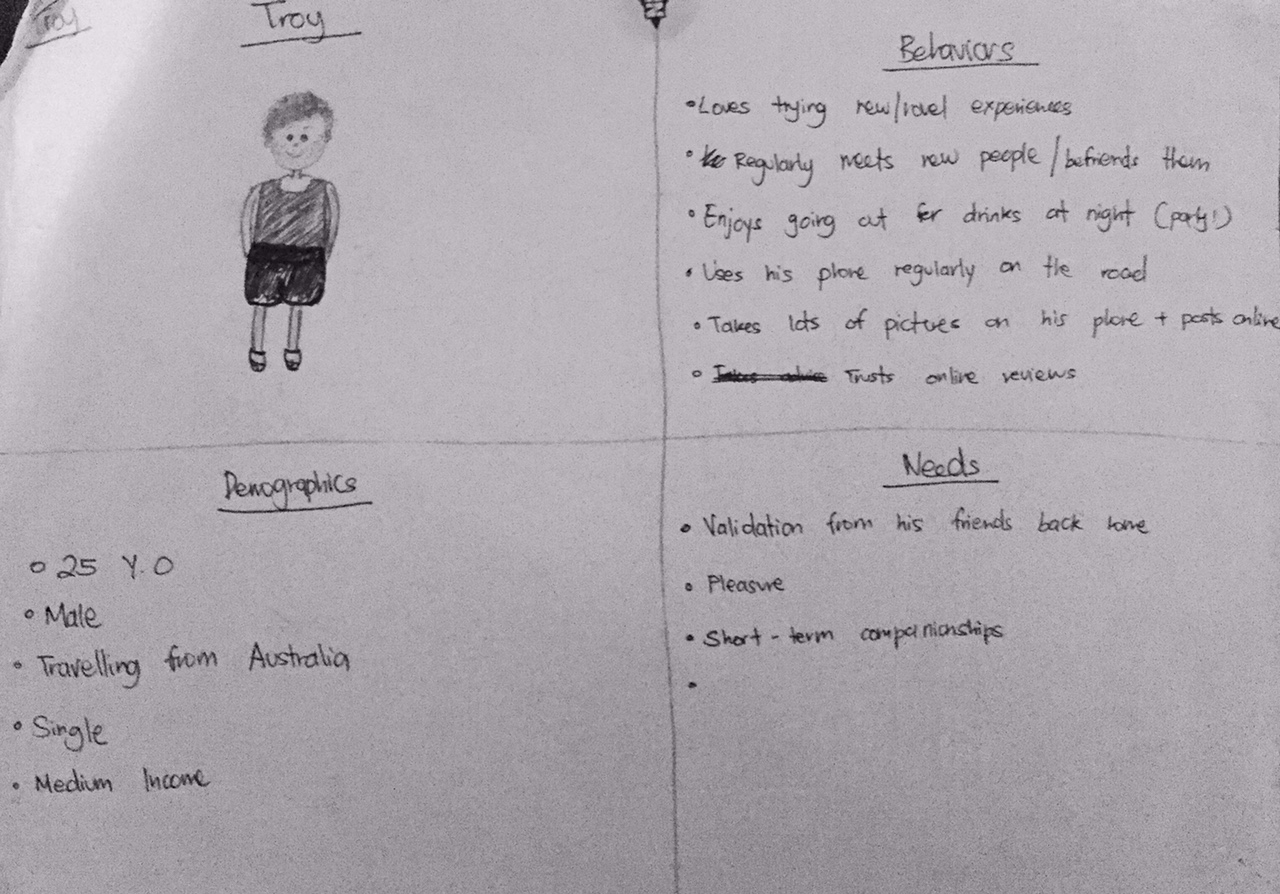 Troy
Troy
Behaviors
• Loves trying new/novel experiences
• Regularly meets new people / befriends them
• Enjoys going out for drinks at night (party!)
• Uses his phone regularly on the road
• Takes lots of pictures on his phone + posts online
• Trusts online reviews
Demographics
• 25 Y.O
• Male
• Travelling from Australia
• Single
• Medium Income
Needs
• Validation from his friends back home
• Pleasure
• Short-term companionships
•